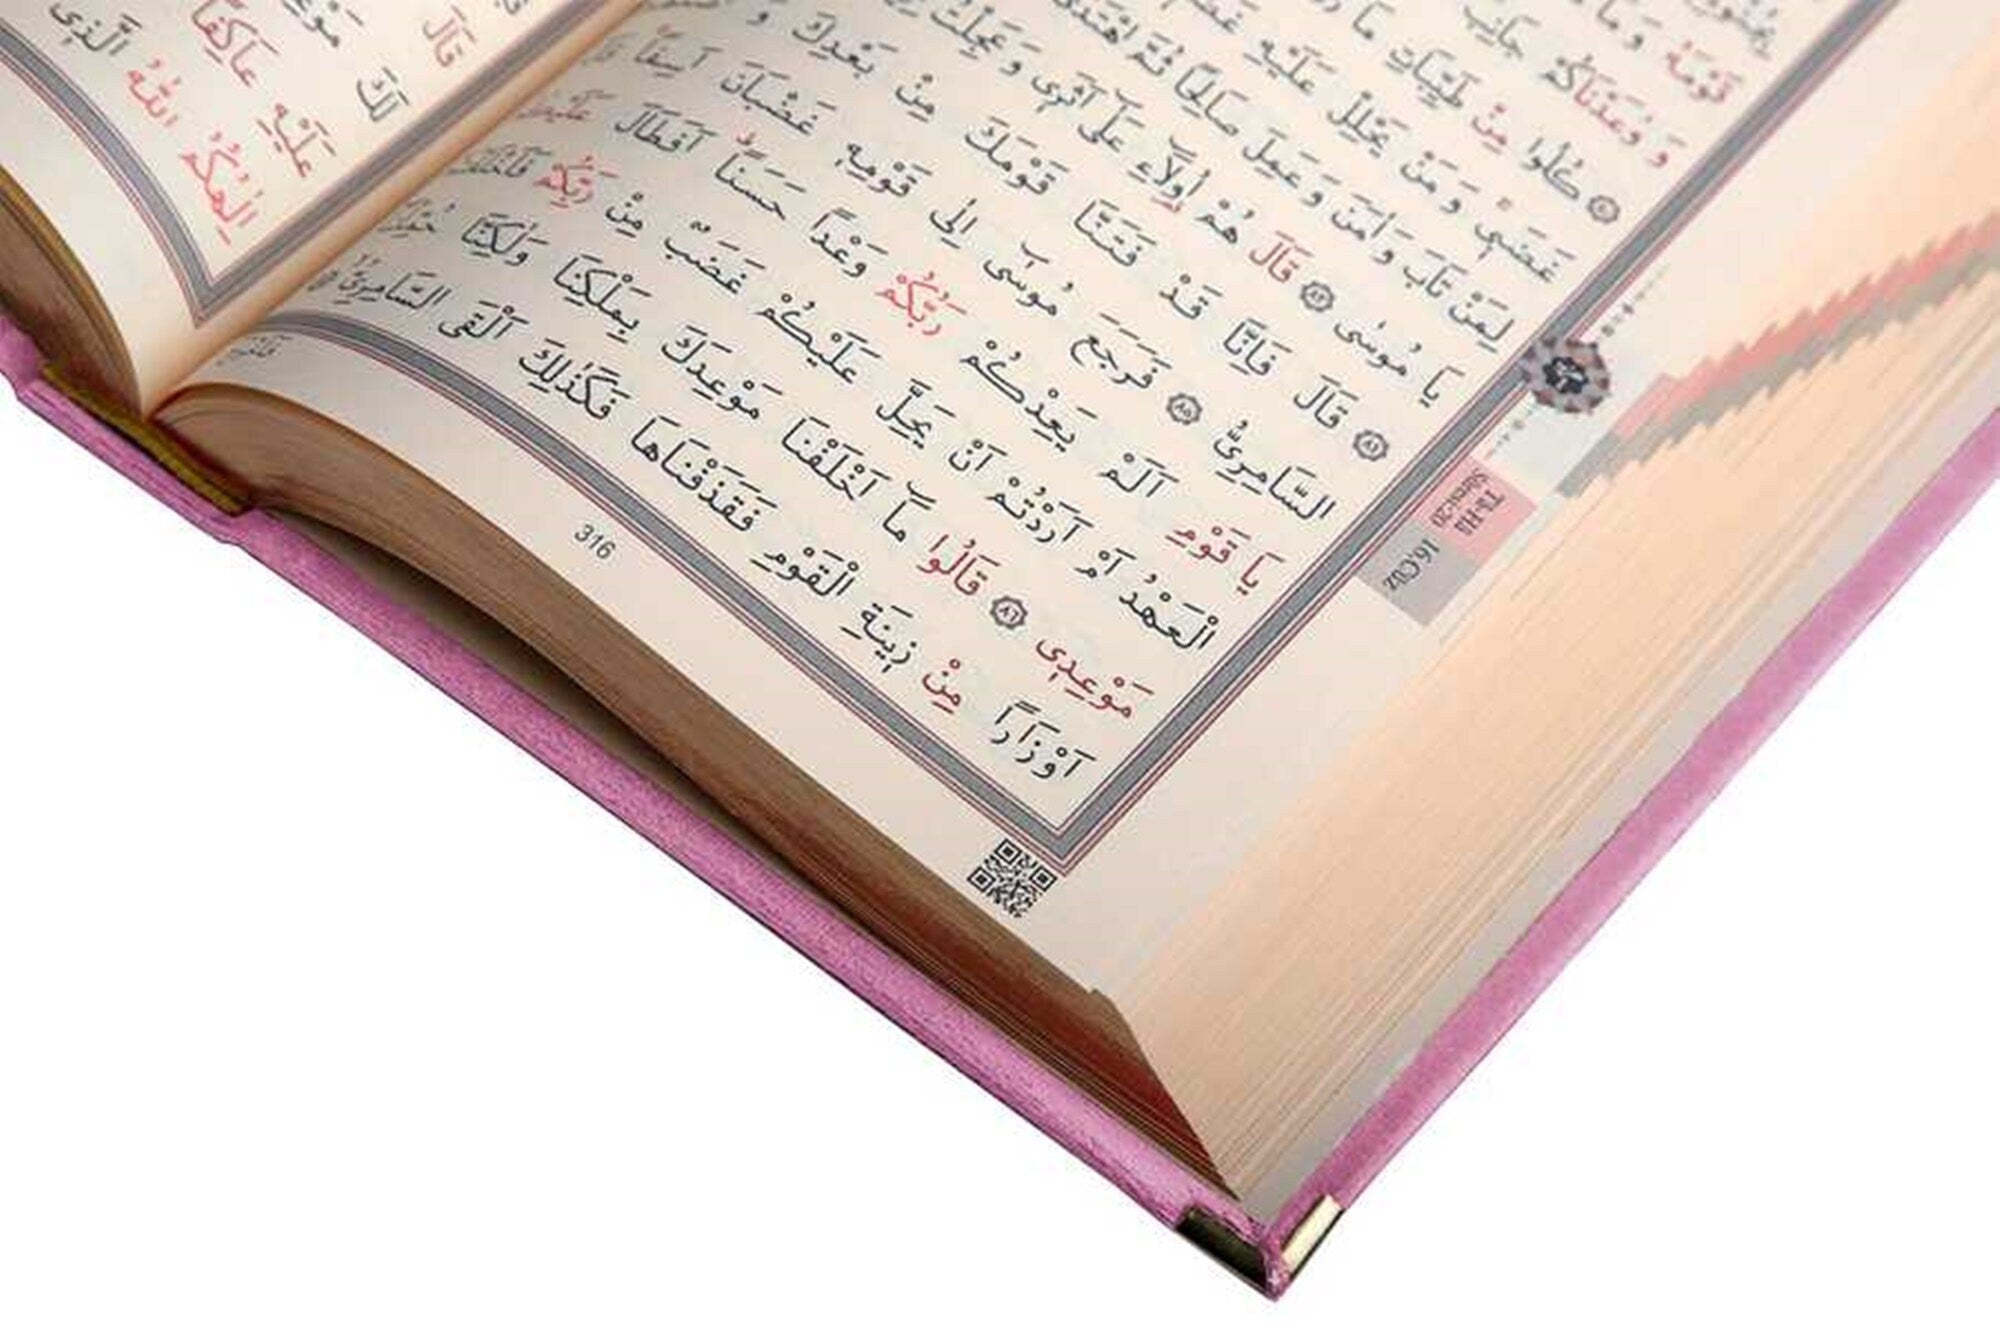 قَوْمَهُ وَمَا
وَوٰعَدْنَاكُمْ جَانِبَ
كُلُوا مِنْ طَيِّبَاتِ مَا
غَضَبٖى وَمَنْ يَحْلِلْ عَلَيْهِ
لِمَنْ تَابَ وَاٰمَنَ وَعَمِلَ صَالِحًا ثُمَّ اهْتَدٰى
يَا مُوسٰى ﴿٨٣﴾ قَالَ هُمْ اُولَٓاءِ عَلٰٓى اَثَرٖى وَعَجِلْتُ
﴿٨٤﴾ قَالَ فَاِنَّا قَدْ فَتَنَّا قَوْمَكَ مِنْ بَعْدِكَ وَ
السَّامِرِىُّ ﴿٨٥﴾ فَرَجَعَ مُوسٰٓى اِلٰى قَوْمِهٖ غَضْبَانَ اَسِفًا
يَا قَوْمِ اَلَمْ يَعِدْكُمْ رَبُّكُمْ وَعْدًا حَسَنًا اَفَطَالَ
الْعَهْدُ اَمْ اَرَدْتُمْ اَنْ يَحِلَّ عَلَيْكُمْ غَضَبٌ مِنْ رَبِّكُمْ
مَوْعِدٖى ﴿٨٦﴾ قَالُوا مَٓا اَخْلَفْنَا مَوْعِدَكَ بِمَلْكِنَا وَلٰكِنَّا
اَوْزَارًا مِنْ زٖينَةِ الْقَوْمِ فَقَذَفْنَاهَا فَكَذٰلِكَ اَلْقَى السَّامِرِىُّ
316
Tâ-Hâ
Sûresi-20
16.Cüz
قَالَ
لَكَ
عَلَيْهِ عَاكِفًا
اِلٰهُكُمُ اللّٰهُ الَّذٖى